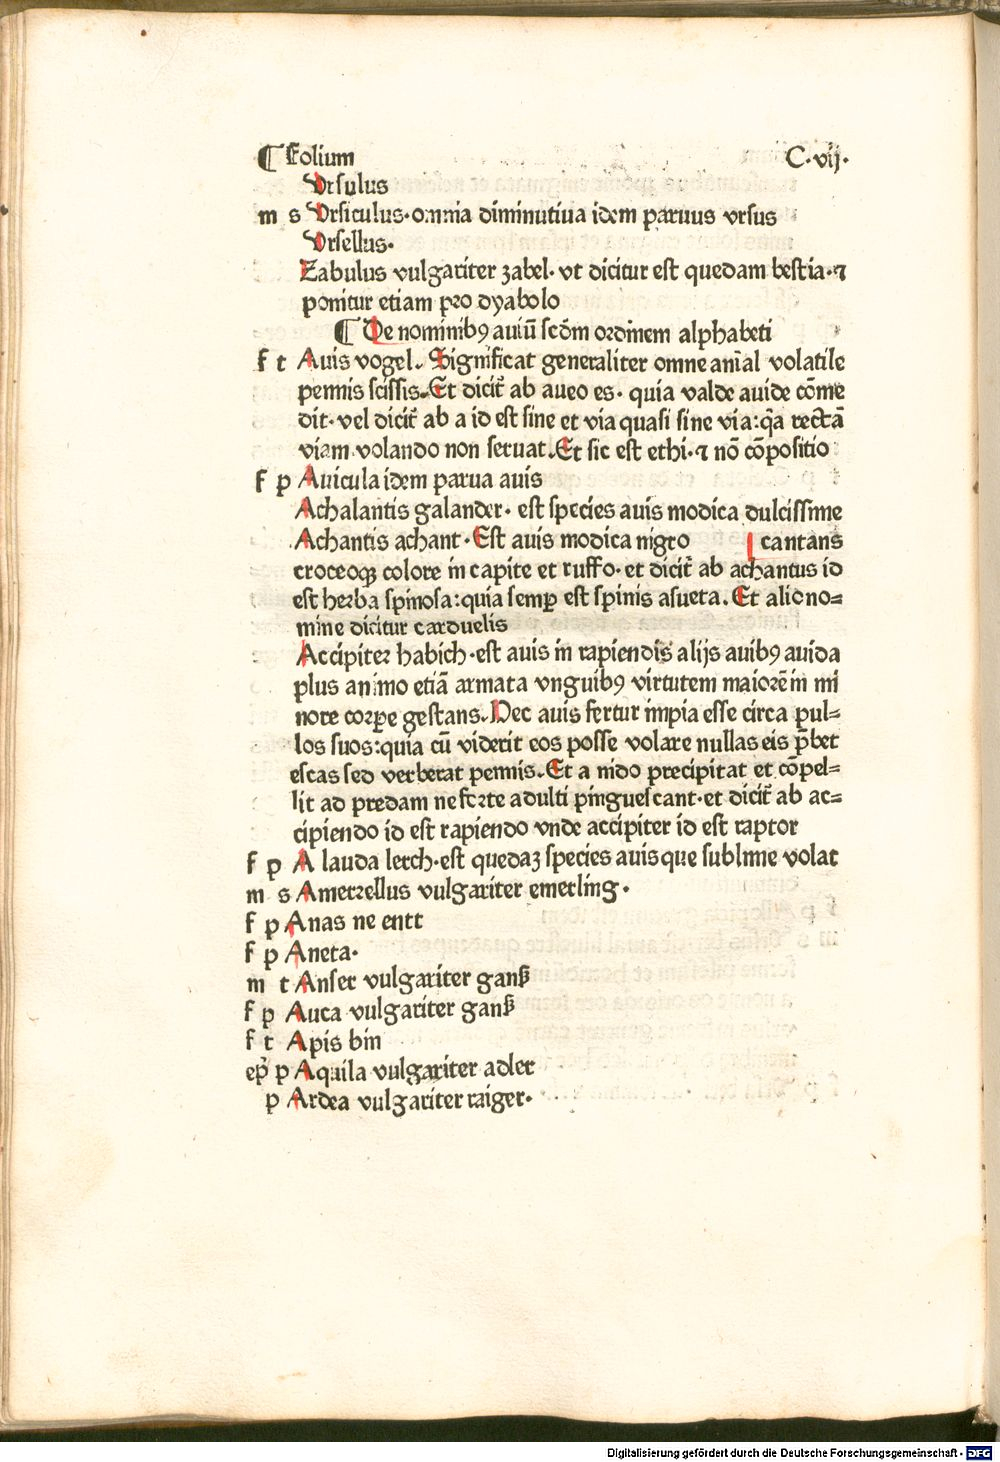 ¶ Folium C·vij·
Ursulus
m s Ursiculus·omnia diminutiua idem paruus vrsus
Ursellus·
Zabulus vulgariter zabel·vt dicitur est quedam bestia·⁊
ponitur etiam pro dyabolo
¶ De nominibꝯ auiū scd̄m ordinem alphabeti
f t Auis vogel. Significat generaliter omne anīal volatile
pennis scissis. Et dicit̃ ab aueo es· quia valde auide cōme
dit·vel dicit̃ ab a id est sine et via quasi sine via:q̄a rectā
viam volando non seruat. Et sic est ethi·⁊ nō cōpositio
f p Auicula idem parua auis
Achalantis galander· est species auis modica dulcissime
Achantis achant·Est auis modica nigro cantans
croceoqꝫ colore in capite et ruffo·et dicit̃ ab achantus id
est herba spinosa:quia semꝑ est spinis asueta. Et alio no=
mine dicitur carduelis
Accipiter habich·est auis in rapiendis alijs auibꝯ auida
plus animo etiā armata vnguibꝯ virtutem maiorē in mi
nore corꝑe gestans. Hec auis fertur impia esse circa pul=
los suos:quia cū viderit eos posse volare nullas eis p̄bet
escas sed verberat pennis. Et a nido precipitat et cōpel=
lit ad predam ne forte adulti pinguescant·et dicit̃ ab ac=
cipiendo id est rapiendo vnde accipiter id est raptor
f p A lauda lerch·est quedaꝫ species auis que sublime volat
m s Amerellus vulgariter emerling·
f p Anas ne entt
f p Aneta·
m t Anser vulgariter ganß
f p Auca vulgariter ganß
f t Apis bin
ep̄ p Aquila vulgariter adler
p Ardea vulgariter raiger·
Digitalisierung gefördert durch die Deutsche Forschungsgemeinschaft - DFG